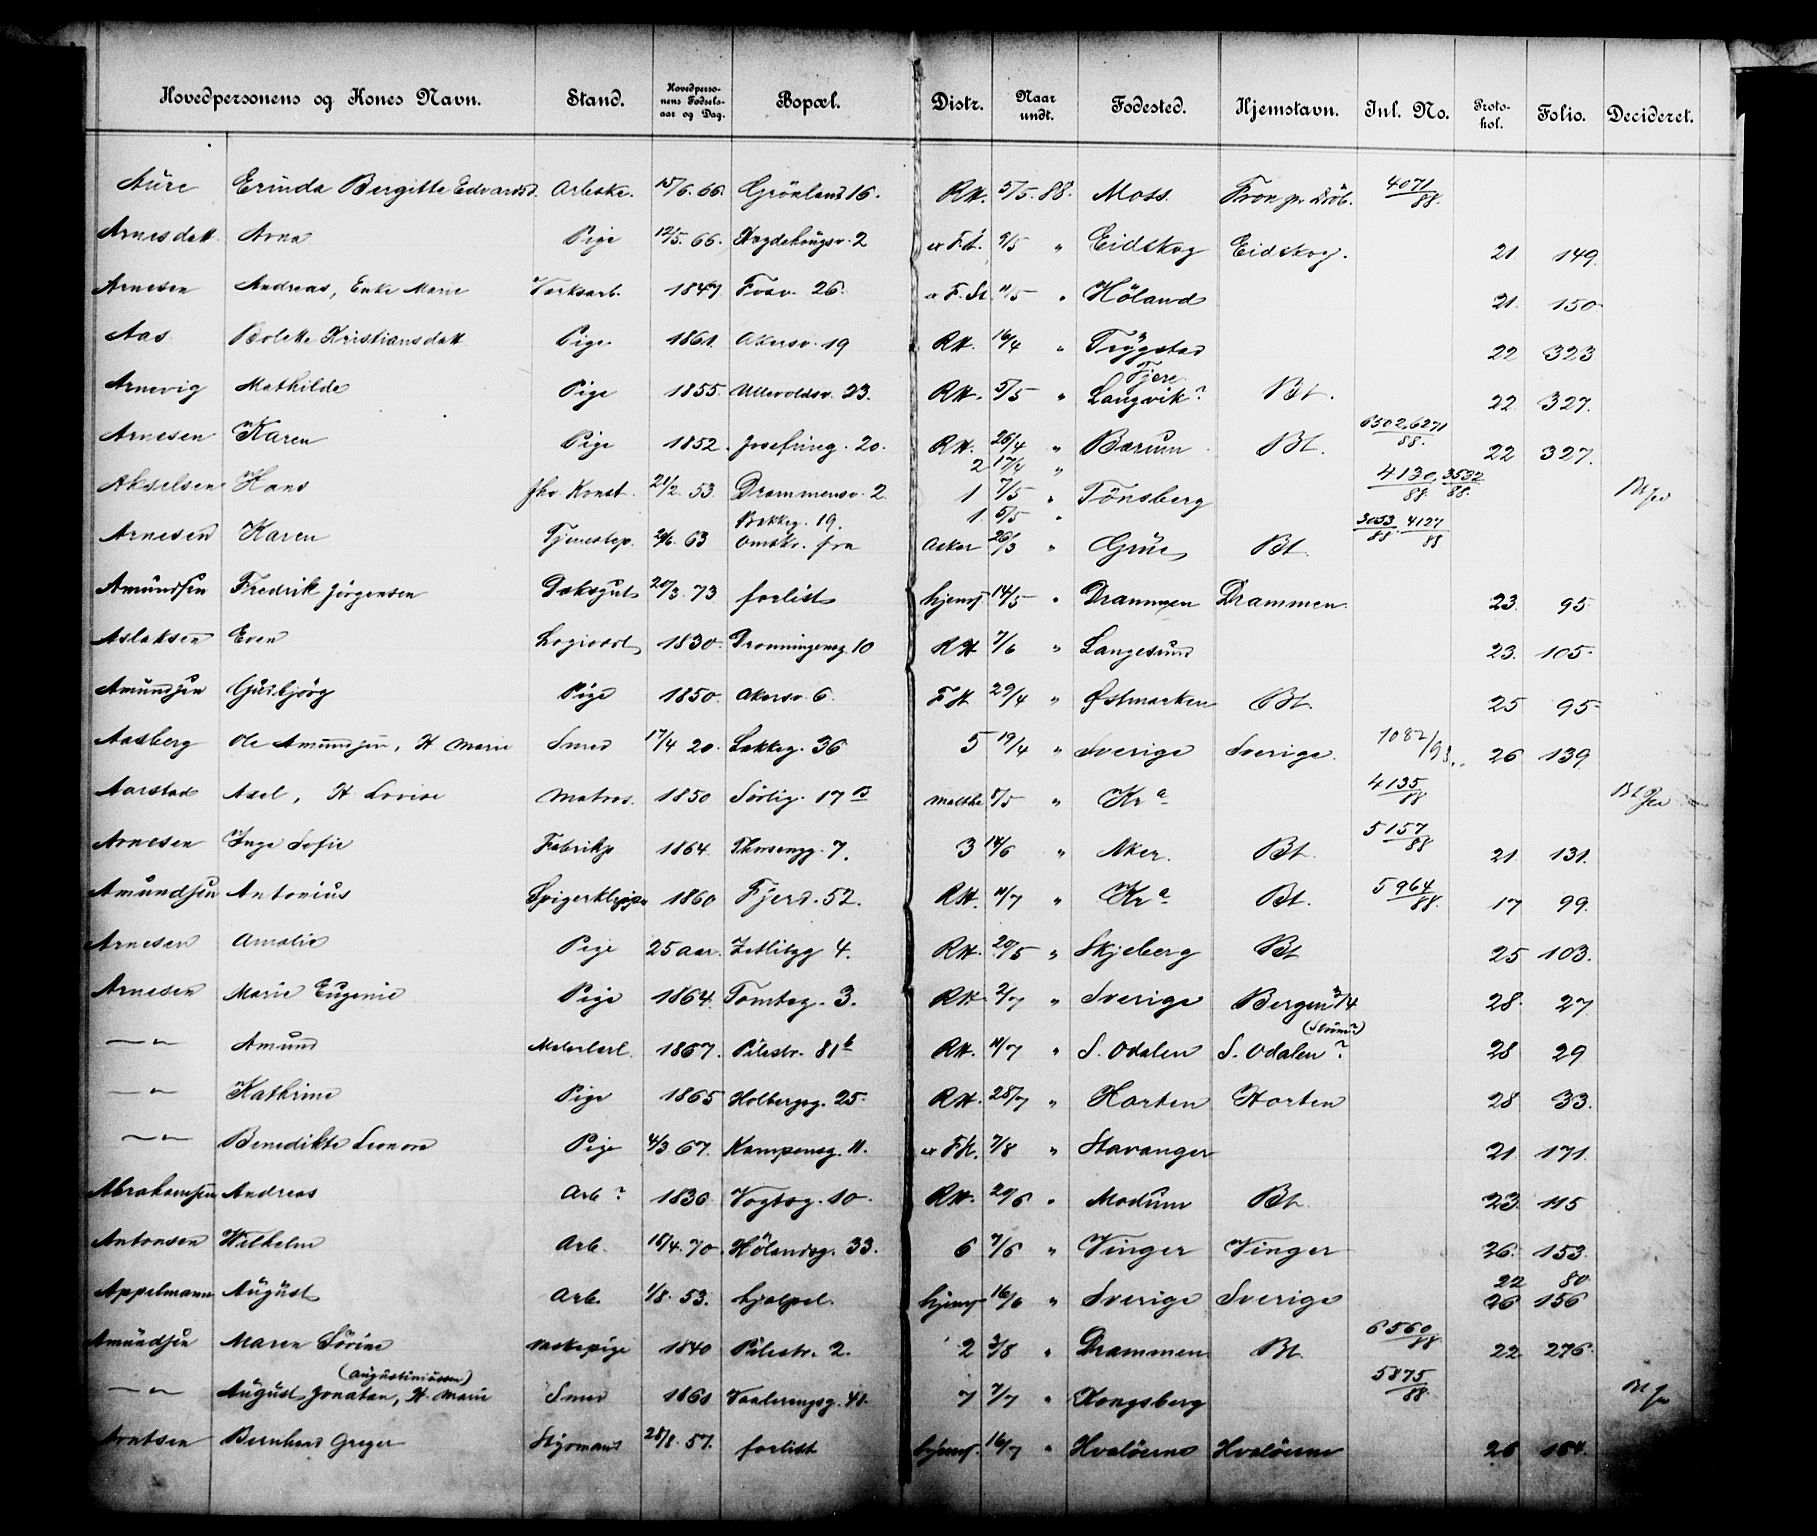 Hovedpersonens og Kones Navn. Stand. Hovedpersonens Fødselsaar og Dag. Bopæl. Distr. Naar undt. Fødested. Hjemstavn. Inl. No. Protokol. Folio. Decideret.
Aure Erinda Bergitte Edvardsd. Arbeske. 15/6. 66. Grönland 16. RH. 5/5. 88. Moss. Fron pr Dröb. 4071/88.
Arnesdatt. Arna Pige 12/5. 66. Hegdehaugsv. 2 FH. 9/5 " Eidskog Eidskog. 21 149.
Arnesen Andreas, Enke Marie Værksarb. 1847 Fosv. 26. F. St. 11/5 " Höland 21. 150.
Aas. Bolette Kristiansdatt Pige. 1861. Akersv. 19 RH. 16/4 " Trygstad 22 323
Arnevig Mathilde Pige 1855. Ullevoldsv. 23. RH. 5/5 " Fjere Langvik? Bt. 22 327.
Arnesen Karen Pige 1852. Josefineg. 20. RH. 26/4 " Bærum Bt. 6302, 6271/88. 22 327.
2 17/4 "
Akselsen Hans fhv. Konst. 21/2. 53. Drammensv. 2 1 7/5 " Tönsberg 4130/88, 3532/88.
Bakkeg. 19. 1 5/5 "
Arnesen Karen Tjenestep. 26/6. 63 Omstr. fra Asker 26/3 " Grue Bt. 3053/88. 4127/88
Amundsen Fredrik Jörgensen Dæksgut 20/3. 73 forlist hjemf 14/5 " Drammen Drammen. 23. 95
Aslaksen Even Logivært 1830. Dronningensg. 10 RH 7/6 " Langesund 23. 105.
Amundsen Gudbjörg Pige 1850. Akersv. 6. FH 29/4 " Østmarken Bt. 25 95.
Aasberg Ole Amundsen, H Marie Smed 17/4 20. Lakkeg. 36 5 19/4 " Sverige Sverige. 1082/93. 26 139.
Aarstad Axel, H. Lovise Matros. 1850 Sörlig. 17 B Malthe 8/5 " Kr a 4135/88
Arnesen Inga Sofie Fabrikp 1864. Thorsengg. 7. 3 14/6 " Aker. Bt. 5157/88 21. 131.
Amundsen Antonius Spigerklipper 1860 Fjerd. 52. RH. 11/7 " Kr a Bt. 5964/88. 17 99.
Arnesen Amalie Pige 25 aar. Zetlitzg 4. RH. 20/5 " Skjeberg Bt 25 103.
Arnesen Marie Eugenie Pige 1864. Tomteg. 3. RH. 2/7 " Sverige Bergen 3/4 28. 27
—"— Amund Malerlærl. 1867. Pilestr. 81 b RH. 11/7 " S. Odalen S. Odalen? 28 29
—"— Kathrine Pige 1865 Holbergsg. 25. RH. 28/7 " Horten Horten 28 33.
—"— Benedikte Leonore Pige 4/3 67. Kampensg. 11. FH. 7/8 " Stavanger 21. 171.
Abrahamsen Andreas Arb? 1836. Vogtsg. 10. RH. 20/6 " Modum Bt. 23. 115
Antonsen Wilhelm Arb. 18/4. 70. Hölandsg. 33. 6 7/6 " Vinger Vinger 26. 153.
22 80.
Appelmann August Arb. 1/8. 53. hjælpel. hjemf 16/6 " Sverige Sverige 26 156
Amundsen Maren Sörine Vaskepige 1840 Pilestr. 2. 2 3/8 " Drammen Bt. 6560/88. 22 276.
(Augustinussen)
—"— August Jonatan, H. Marie Smed 1861 Vaalerengsg. 41. 7 7/7 " Kongsberg 5875/88.
Arntsen Bernhard Greger Styrmand 28/8. 57. forlist hjemf. 16/7 " Hvalöerne Hvalöerne 26 164.